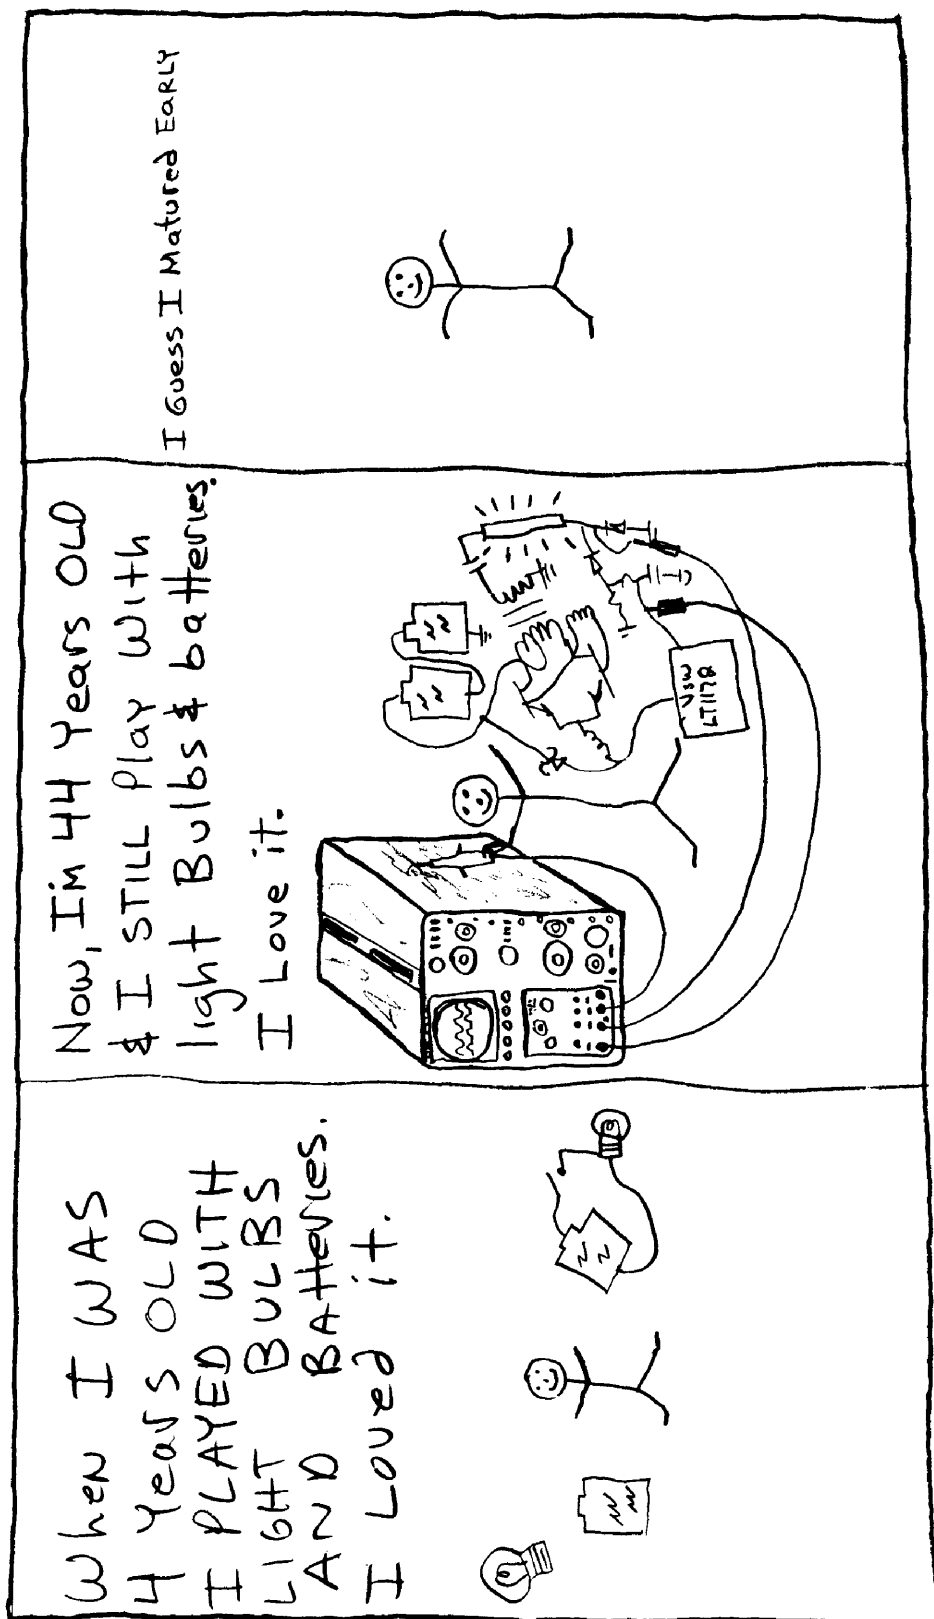 When I WAS
4 Years OLD
I PLAYED WITH
LIGHT BULBS
AND BATTeries.
I Loved it.
Now, I'M 44 Years OLD
& I STILL Play With
light Bulbs & batteries.
I Love it.
VSW
LT1172
I Guess I Matured EaRLY